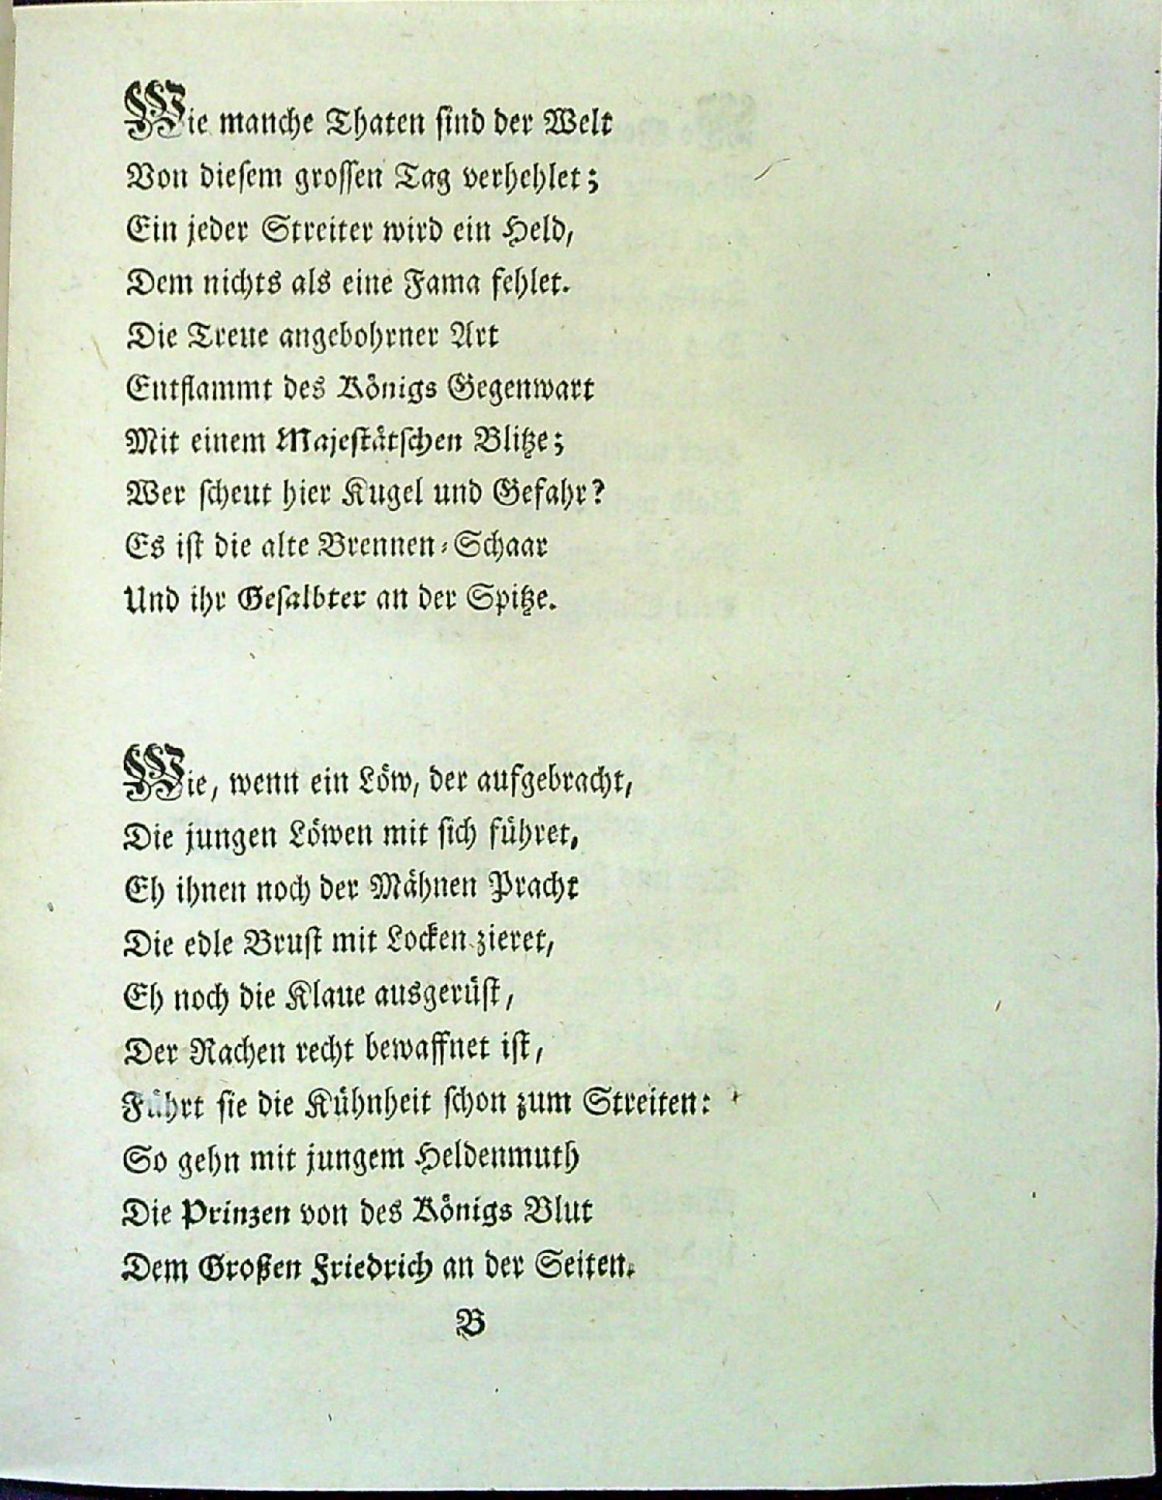 Wie manche Thaten sind der Welt
Von diesem grossen Tag verhehlet;
Ein jeder Streiter wird ein Held,
Dem nichts als eine Fama fehlet.
Die Treue angebohrner Art
Entflammt des Königs Gegenwart
Mit einem Majestätschen Blitze;
Wer scheut hier Kugel und Gefahr?
Es ist die alte Brennen-Schaar
Und ihr Gesalbter an der Spitze.
Wie, wenn ein Löw, der aufgebracht,
Die jungen Löwen mit sich führet,
Eh ihnen noch der Mähnen Pracht
Die edle Brust mit Locken zieret,
Eh noch die Klaue ausgerüst,
Der Rachen recht bewaffnet ist,
Führt sie die Kühnheit schon zum Streiten:
So gehn mit jungem Heldenmuth
Die Prinzen von des Königs Blut
Dem Großen Friedrich an der Seiten.
B